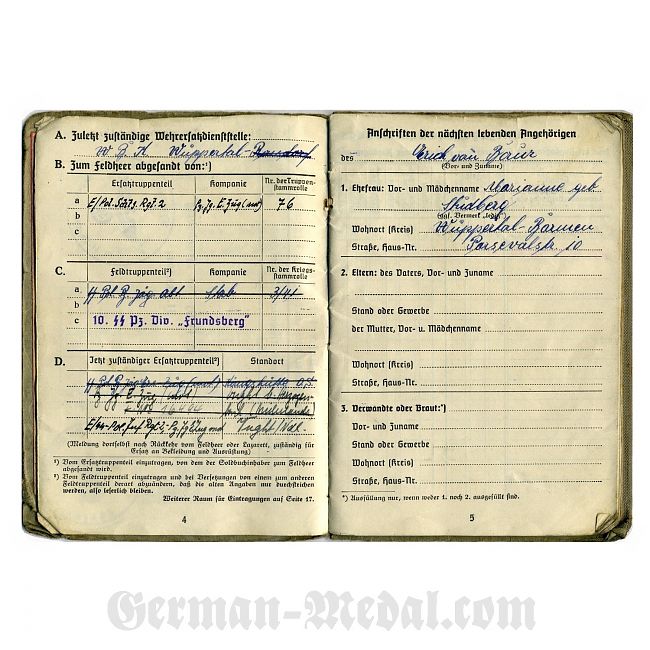 A. Zuletzt zuständige Wehrersatzdienststelle:
W B K Wuppertal-
B. Zum Feldheer abgesandt von:¹)
Ersatztruppenteil Kompanie Nr. der Truppenstammrolle
a E/Pol. Schtz. Rgt. 2 76
b
c
C. Feldtruppenteil²) Kompanie Nr. der Kriegsstammrolle
a Stab 3/41
b
c 10. SS Pz. Div. „Frundsberg“
D. Jetzt zuständiger Ersatztruppenteil²) Standort
Vught
(Meldung dortselbst nach Rückkehr vom Feldheer oder Lazarett, zuständig für
Ersatz an Bekleidung und Ausrüstung)
¹) Vom Ersatztruppenteil einzutragen, von dem der Soldbuchinhaber zum Feldheer
abgesandt wird.
²) Vom Feldtruppenteil einzutragen und bei Versetzungen von einem zum anderen
Feldtruppenteil derart abzuändern, daß die alten Angaben nur durchstrichen
werden, also leserlich bleiben.
Weiterer Raum für Eintragungen auf Seite 17.
4
Anschriften der nächsten lebenden Angehörigen
des Erich van Baur
(Vor- und Zuname)
1. Ehefrau: Vor- und Mädchenname Marianne geb
(ggf. Vermerk „ledig“)
Wohnort (Kreis) Wuppertal-Barmen
Straße, Haus-Nr. Parsevalstr. 10
2. Eltern: des Vaters, Vor- und Zuname
Stand oder Gewerbe
der Mutter, Vor- u. Mädchenname
Wohnort (Kreis)
Straße, Haus-Nr.
3. Verwandte oder Braut:*)
Vor- und Zuname
Stand oder Gewerbe
Wohnort (Kreis)
Straße, Haus-Nr.
*) Ausfüllung nur, wenn weder 1. noch 2. ausgefüllt sind.
5
German-Medal.com